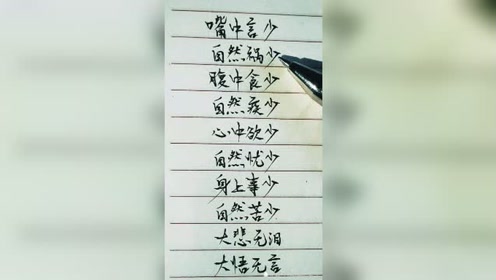 嘴中言少
自然祸少
腹中食少
自然疾少
心中欲少
自然忧少
身上事少
自然苦少
大悲无泪
大悟无言